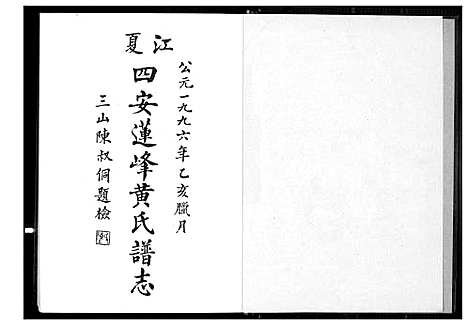 公元一九九六年乙亥臘月
江夏
四安蓮峰黃氏譜志
三山陳叔侗題檢